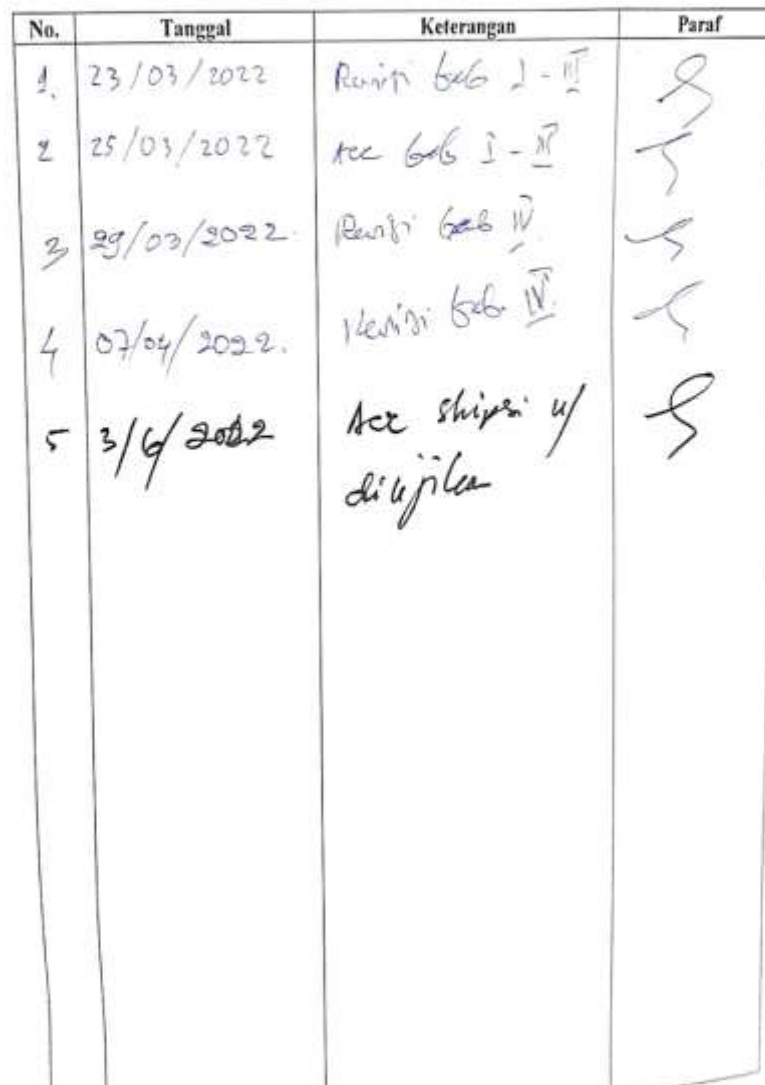 No. Tanggal Keterangan Paraf
1. 23/03/2022 Revisi bab I - III
2 25/03/2022 Acc bab I - III
3 29/03/2022. Revisi bab IV
4 07/04/2022. Revisi bab IV.
5 3/6/2022 Acc skripsi u/
diujikan